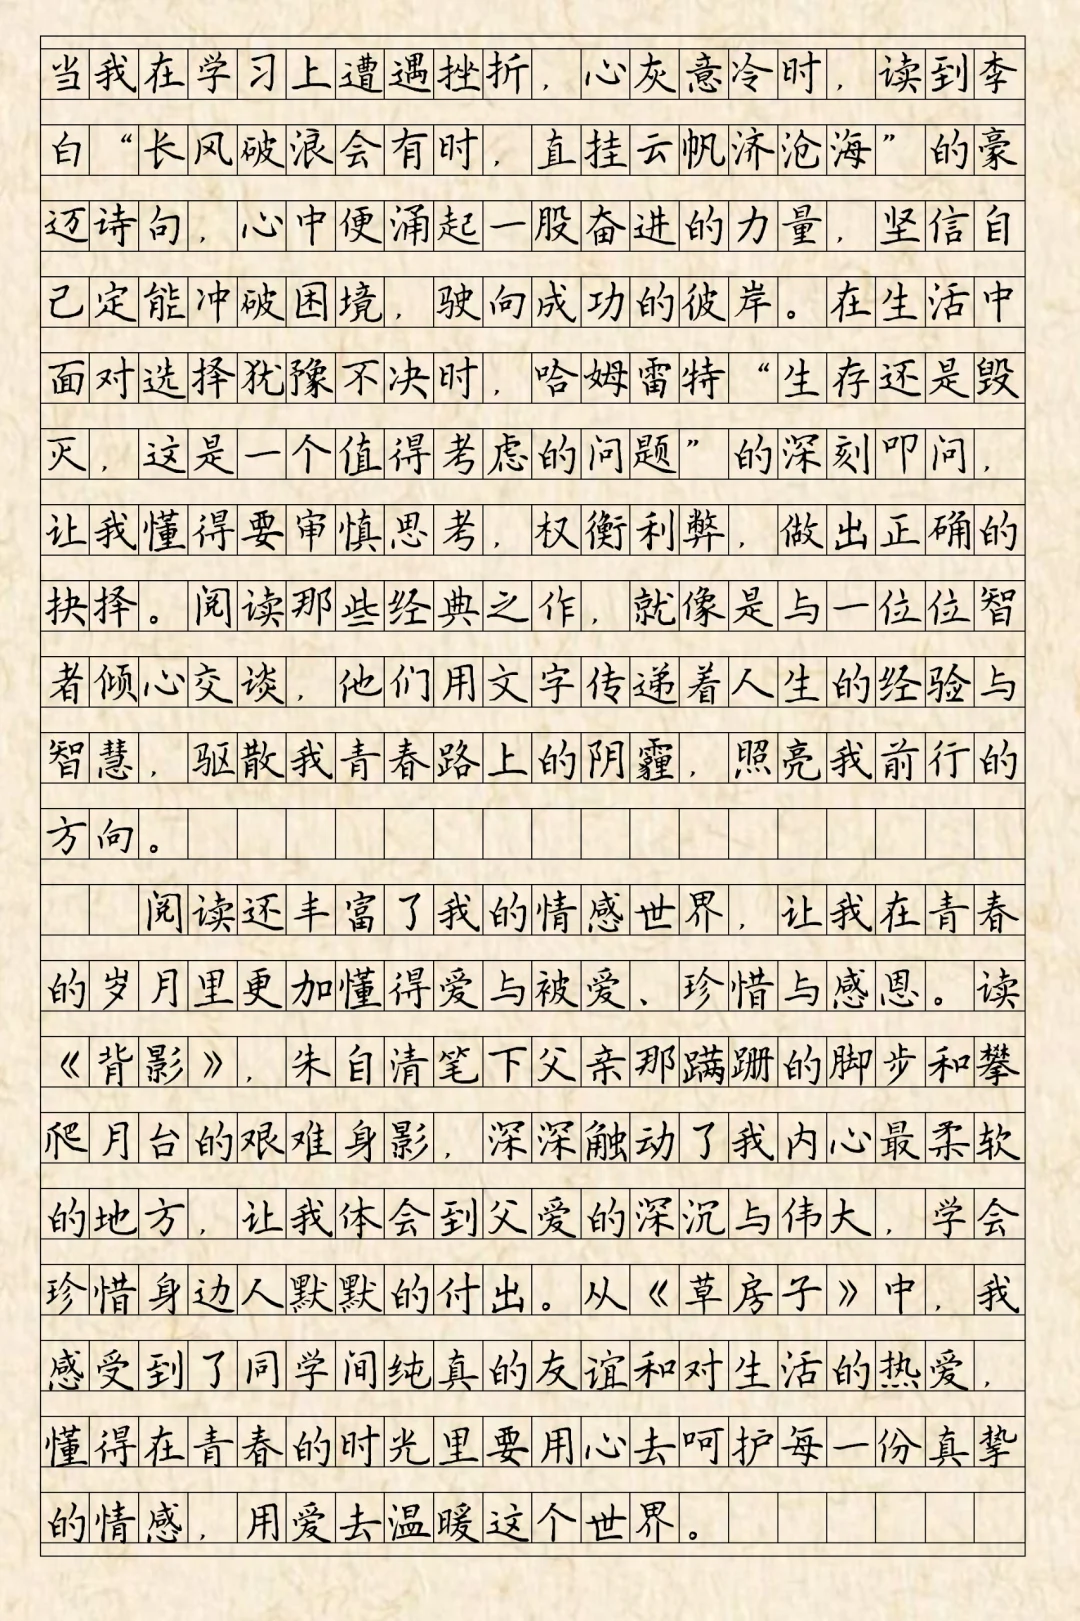 当我在学习上遭遇挫折，心灰意冷时，读到李
白“长风破浪会有时，直挂云帆济沧海”的豪
迈诗句，心中便涌起一股奋进的力量，坚信自
己定能冲破困境，驶向成功的彼岸。在生活中
面对选择犹豫不决时，哈姆雷特“生存还是毁
灭，这是一个值得考虑的问题”的深刻叩问，
让我懂得要审慎思考，权衡利弊，做出正确的
抉择。阅读那些经典之作，就像是与一位位智
者倾心交谈，他们用文字传递着人生的经验与
智慧，驱散我青春路上的阴霾，照亮我前行的
方向。
阅读还丰富了我的情感世界，让我在青春
的岁月里更加懂得爱与被爱、珍惜与感恩。读
《背影》，朱自清笔下父亲那蹒跚的脚步和攀
爬月台的艰难身影，深深触动了我内心最柔软
的地方，让我体会到父爱的深沉与伟大，学会
珍惜身边人默默的付出。从《草房子》中，我
感受到了同学间纯真的友谊和对生活的热爱，
懂得在青春的时光里要用心去呵护每一份真挚
的情感，用爱去温暖这个世界。